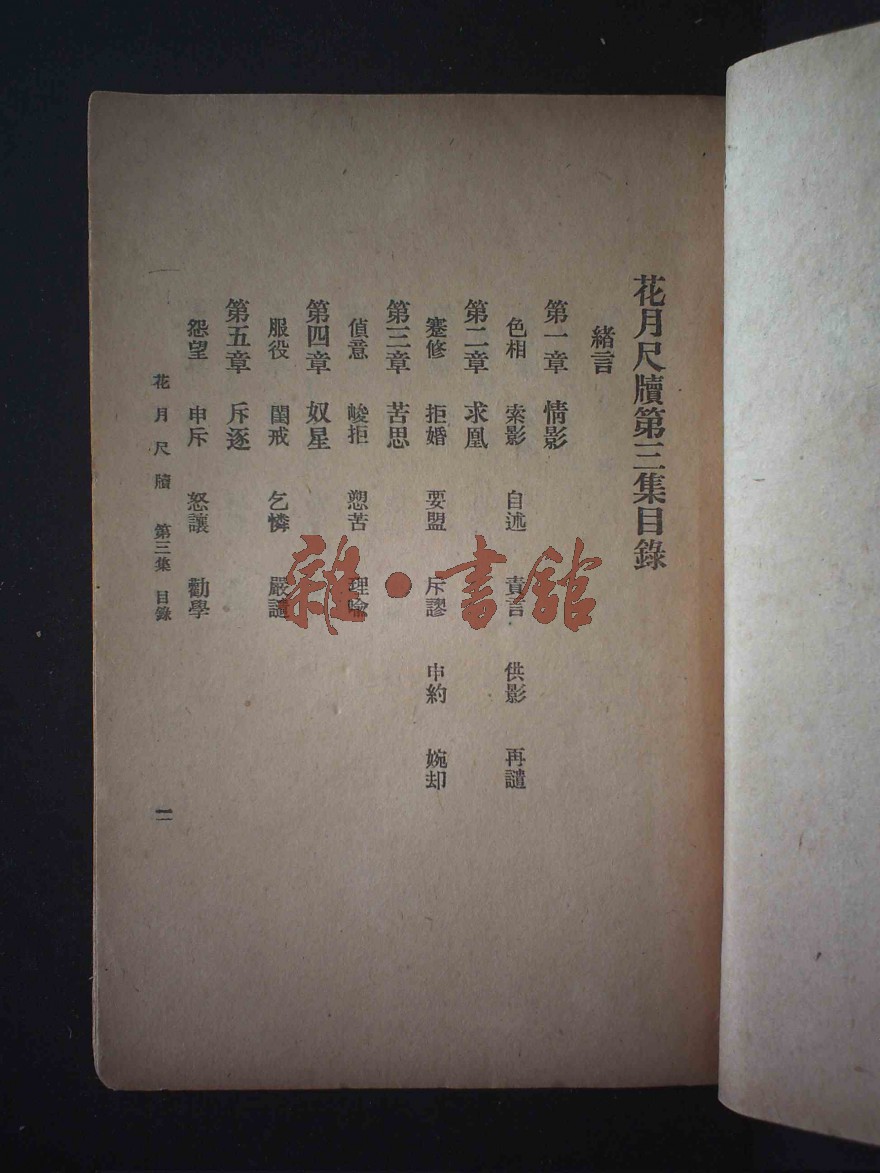 花月尺牘第三集目錄
緒言
第一章 情影
色相 索影 自述 責言 供影 再譴
第二章 求凰
蹇修 拒婚 要盟 斥謬 申約 婉却
第三章 苦思
偵意 峻拒 愬苦 理喩
第四章 奴星
服役 閨戒 乞憐 嚴譴
第五章 斥逐
怨望 申斥 怒讓 勸學
花月尺牘 第三集 目錄 一
雜·書館